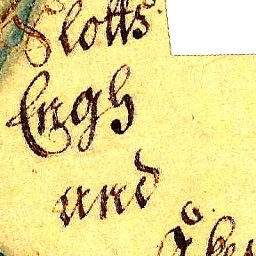 Slotts
Engh
und